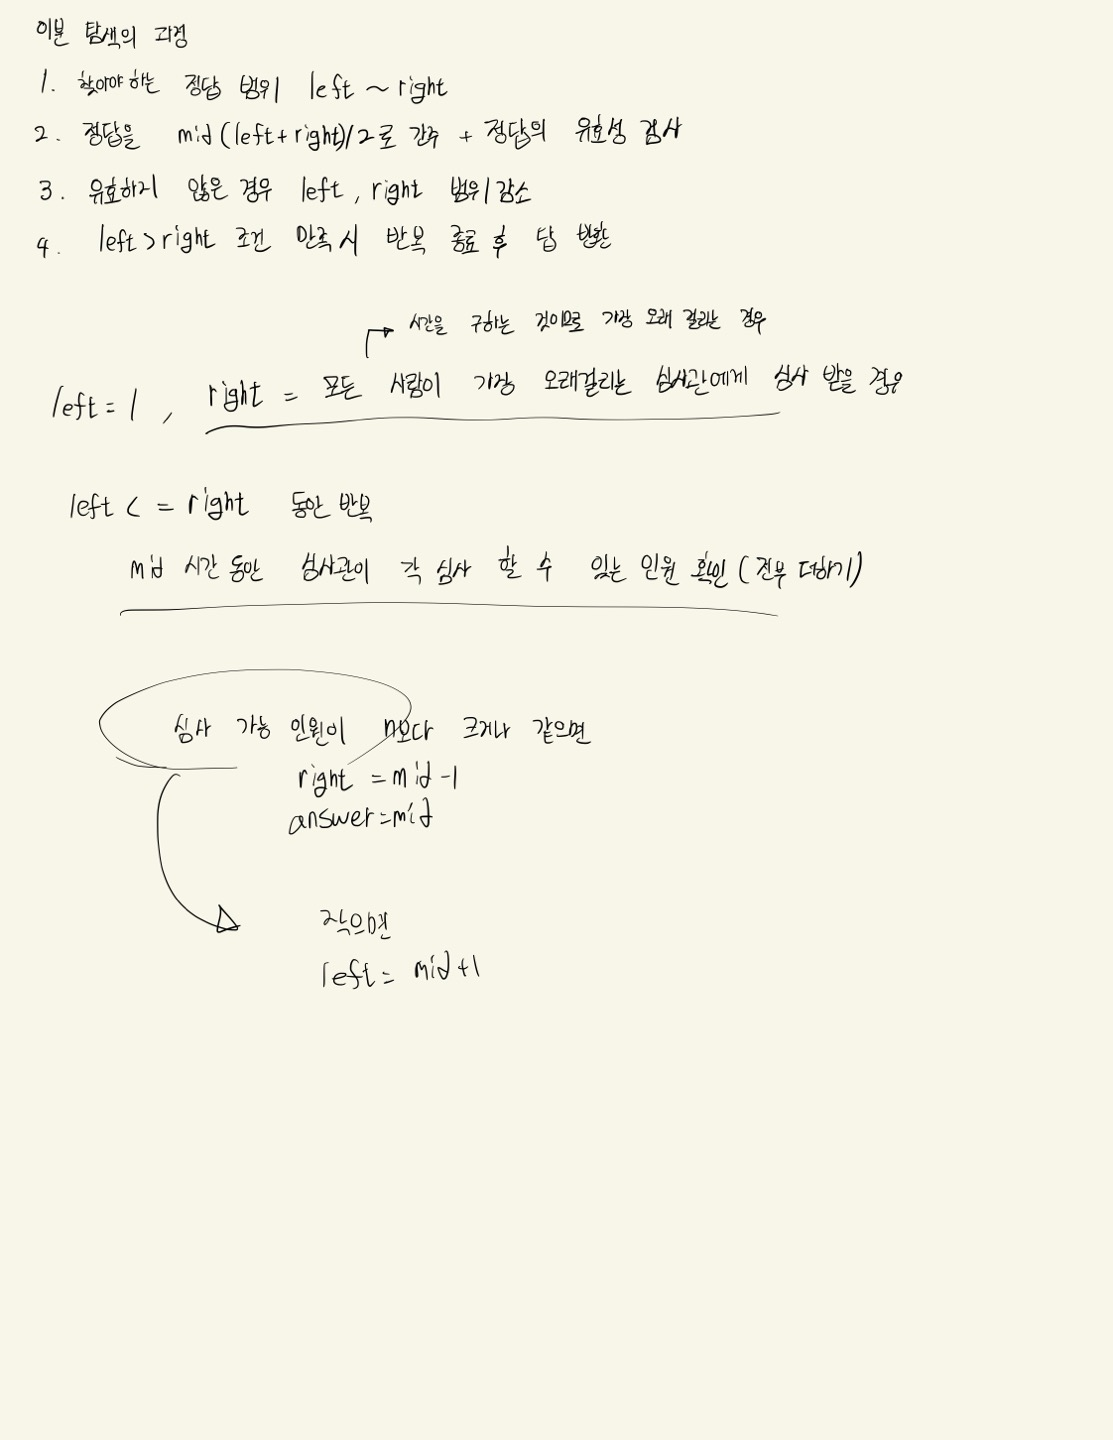 이분 탐색의 과정
1. 찾아야 하는 정답 범위 left ~ right
2. 정답을 mid (left+right)/2로 간주 + 정답의 유효성 검사
3. 유효하지 않은 경우 left, right 범위 감소
4. left > right 조건 만족 시 반복 종료 후 답 반환
시간을 구하는 것이므로 가장 오래 걸리는 경우
left = 1, right = 모든 사람이 가장 오래걸리는 심사관에게 심사 받을 경우
left <= right 동안 반복
mid 시간 동안 심사관이 각 심사 할 수 있는 인원 확인 (전부 더하기)
심사 가능 인원이 n보다 크거나 같으면
right = mid -1
answer = mid
작으면
left = mid +1